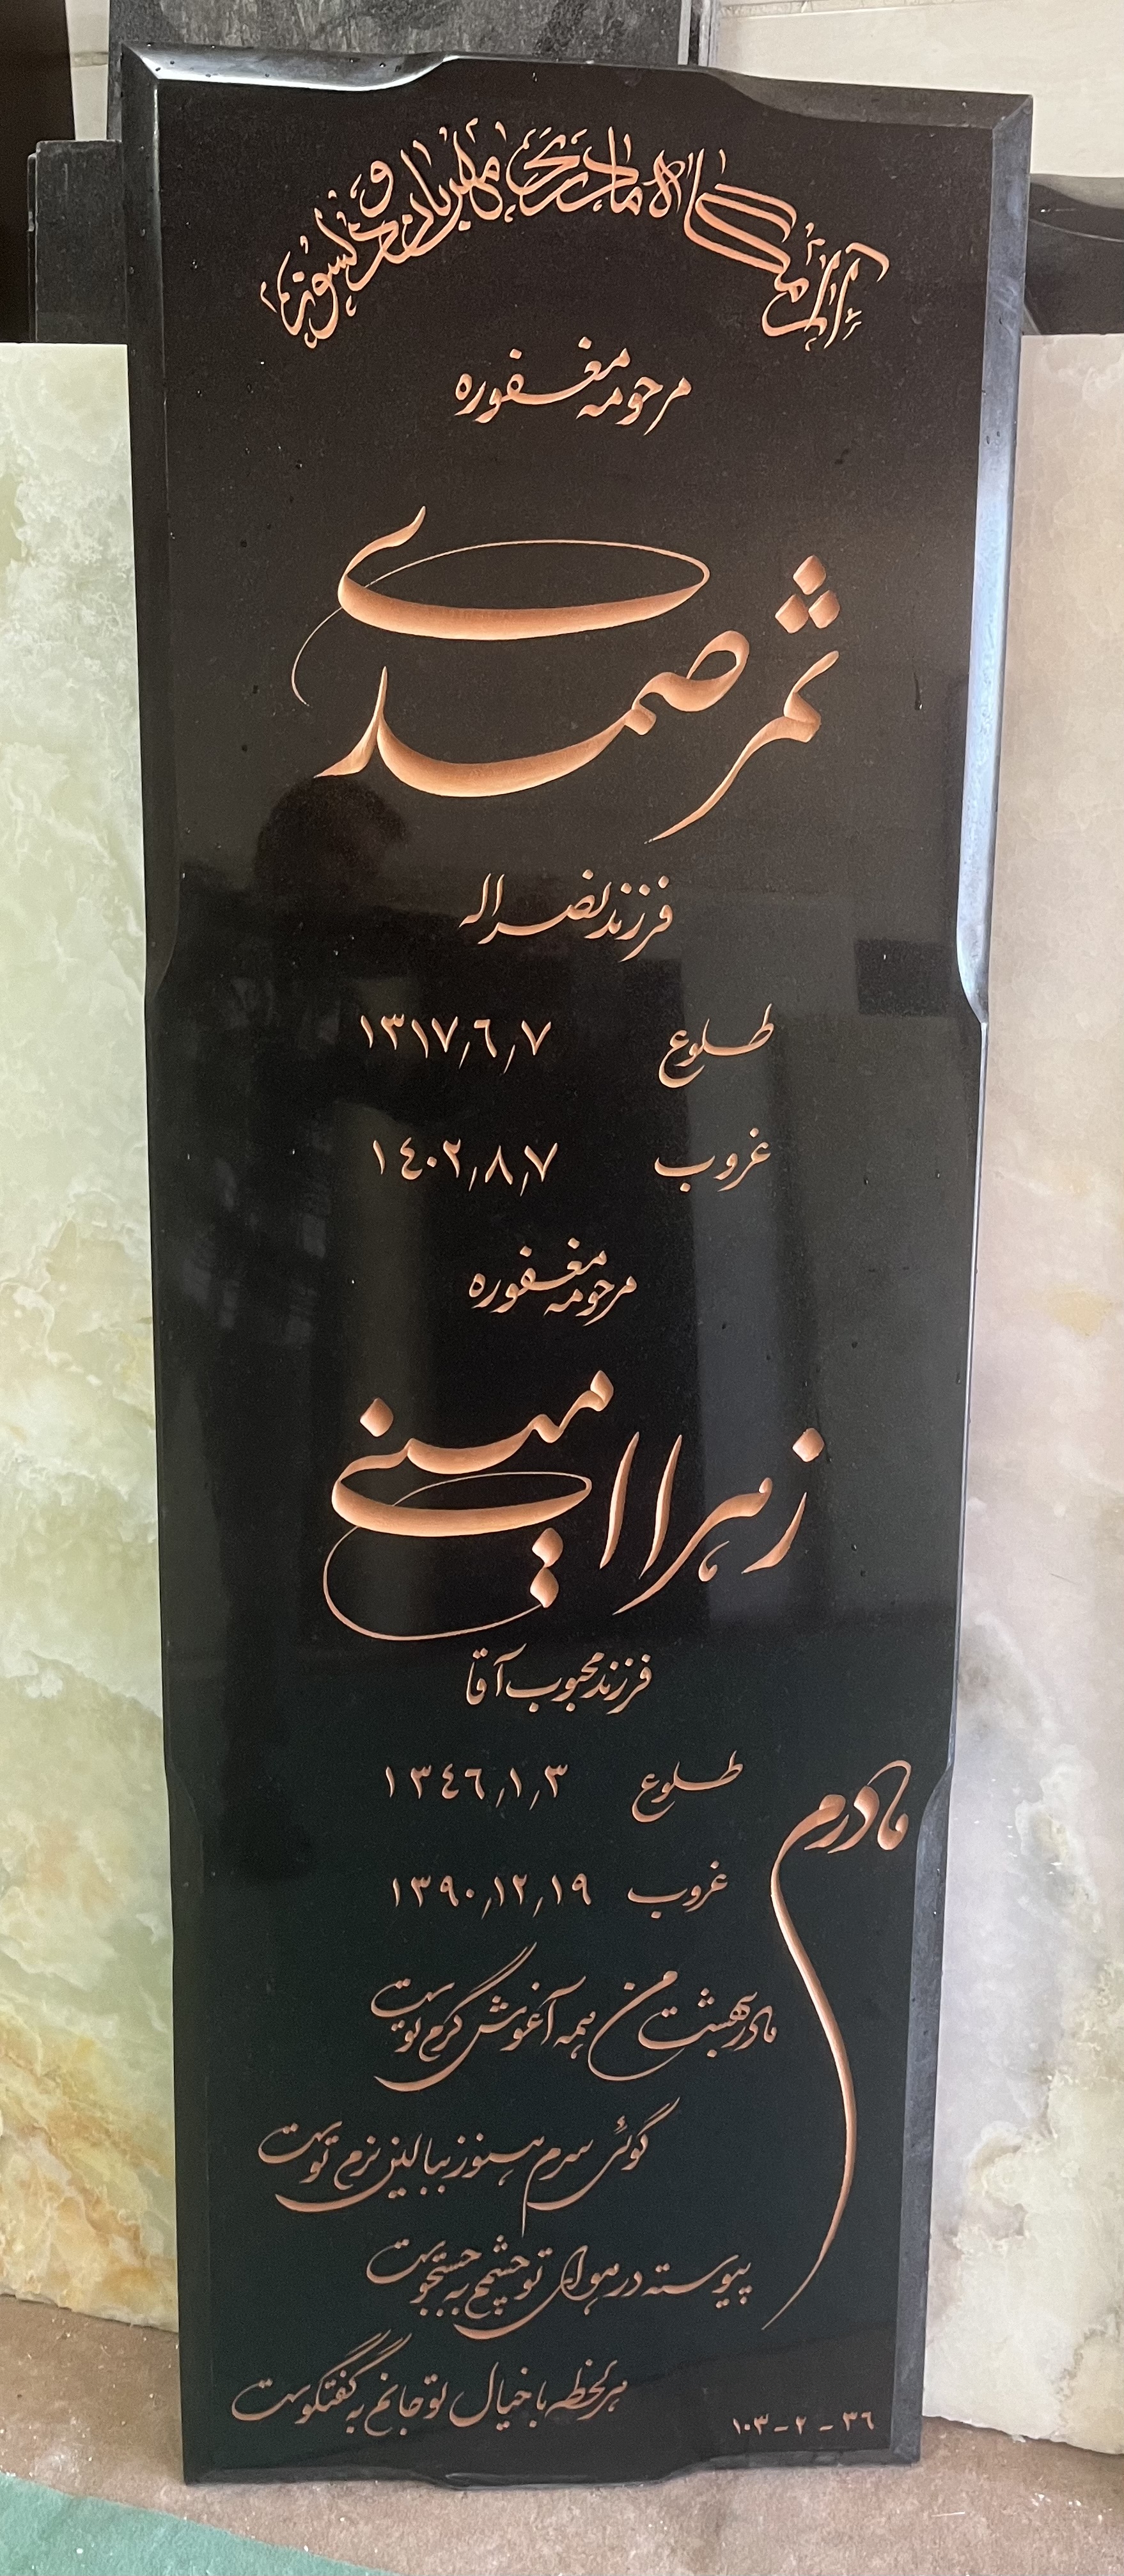 آرامگاه مادری مهربان و دلسوز
مرحومه مغفوره
ثمر صمدی
فرزند نصراله
طلوع ۱۳۱۷٫۶٫۷
غروب ۱۴۰۲٫۸٫۷
مرحومه مغفوره
زهرا امینی
فرزند محبوب آقا
طلوع ۱۳۴۶٫۱٫۳
غروب ۱۳۹۰٫۱۲٫۱۹
مادرم
مادر بهشت من همه آغوش گرم توست
گوئی سرم هنوز ببالین نرم توست
پیوسته در هوای تو چشمم به جستجوست
هر لحظه با خیال تو جانم به گفتگوست
۱۰۳-۲-۳۶